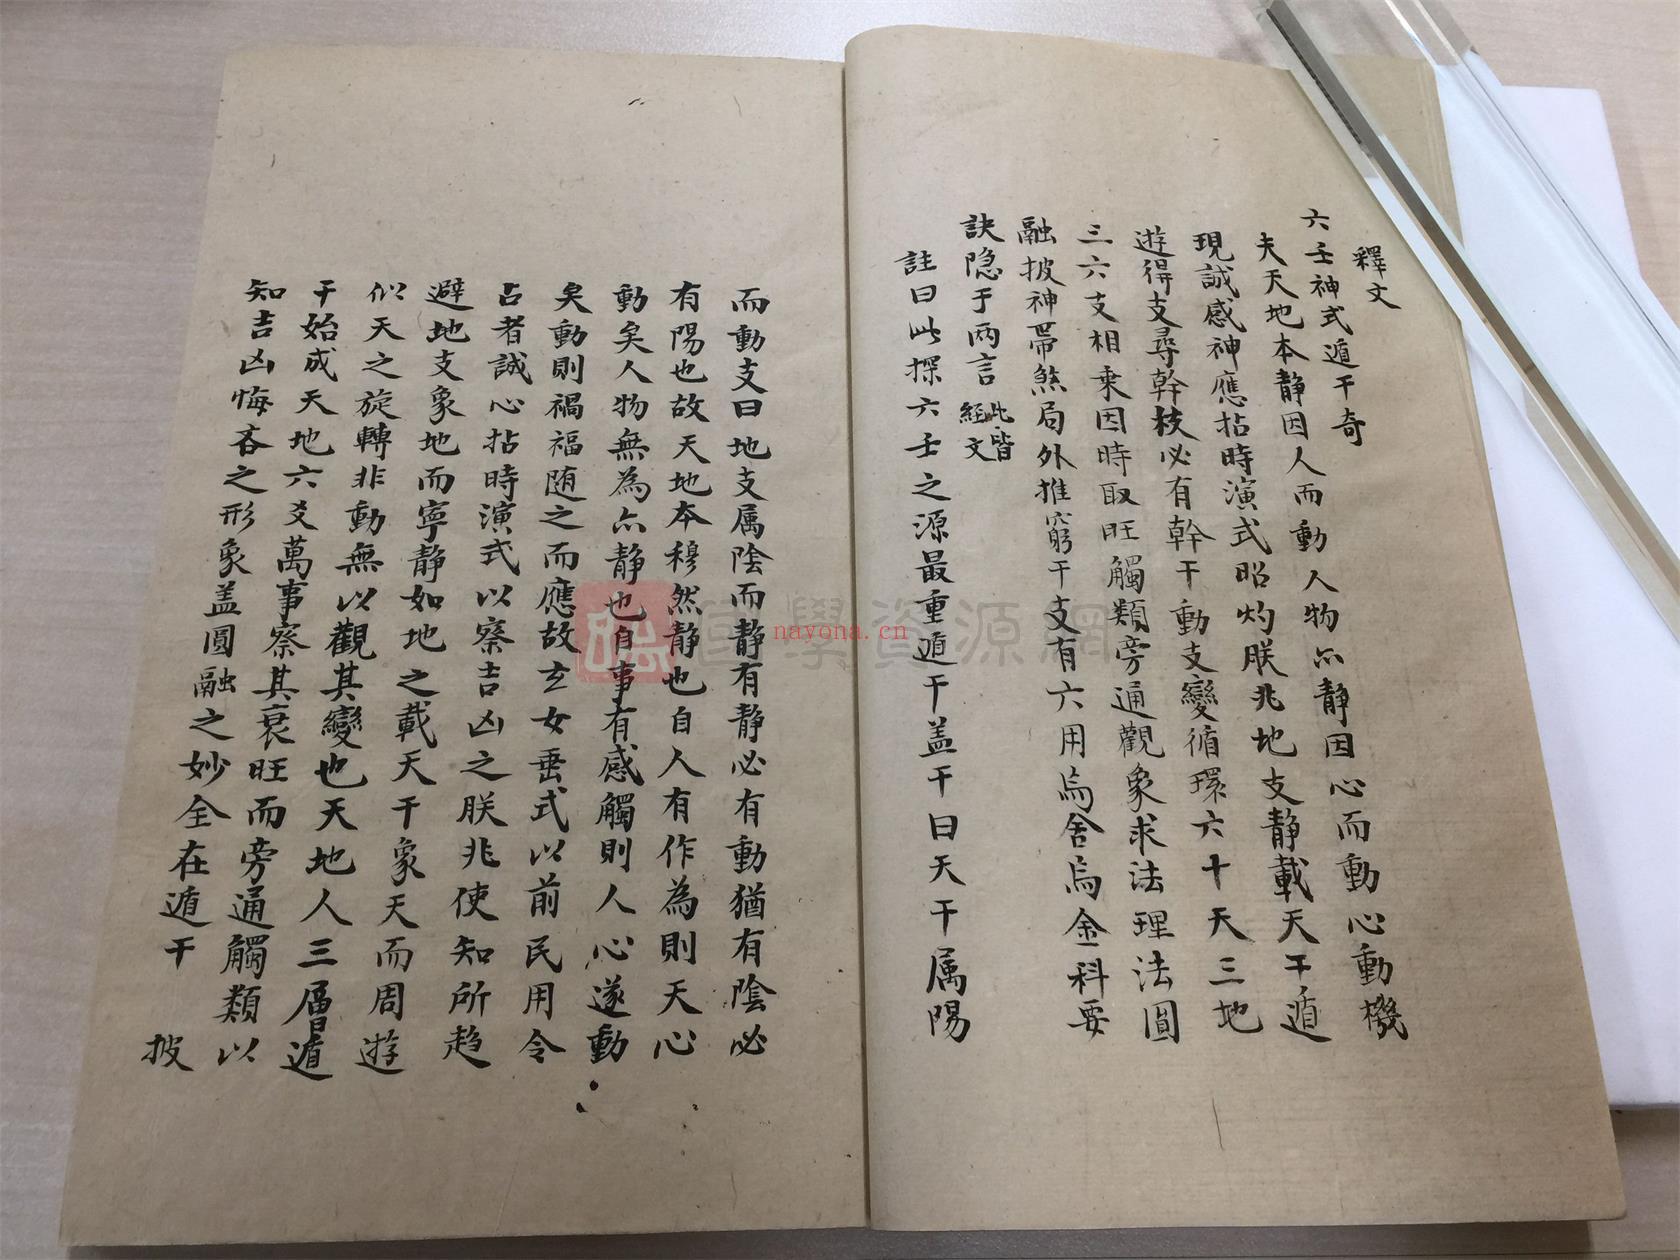 釋文
六壬神式遁干奇
夫天地本靜因人而動人物亦靜因心而動心動機
現誠感神應拈時演式昭灼朕兆地支靜載天干遁
遊得支尋幹枝必有幹干動支變循環六十天三地
三六支相乗因時取旺觸類旁通觀象求法理法圓
融披神帶煞局外推窮干支有六用烏舍烏金科要
訣隐于两言此皆經文
註曰此探六壬之源最重遁干盖干曰天干属陽
而動支曰地支属陰而靜有靜必有動猶有陰必
有陽也故天地本穆然靜也自人有作為則天心
動矣人物無為亦靜也自事有感觸則人心遂動
矣動則禍福随之而應故玄女垂式以前民用令
占者誠心拈時演式以察吉凶之朕兆使知所趋
避地支象地而寧靜如地之載天干象天而周遊
似天之旋轉非動無以觀其變也天地人三層遁
干始成天地六爻萬事察其衰旺而旁通觸類以
知吉凶悔吝之形象盖圓融之妙全在遁干
披
國學資源網
nayona.cn